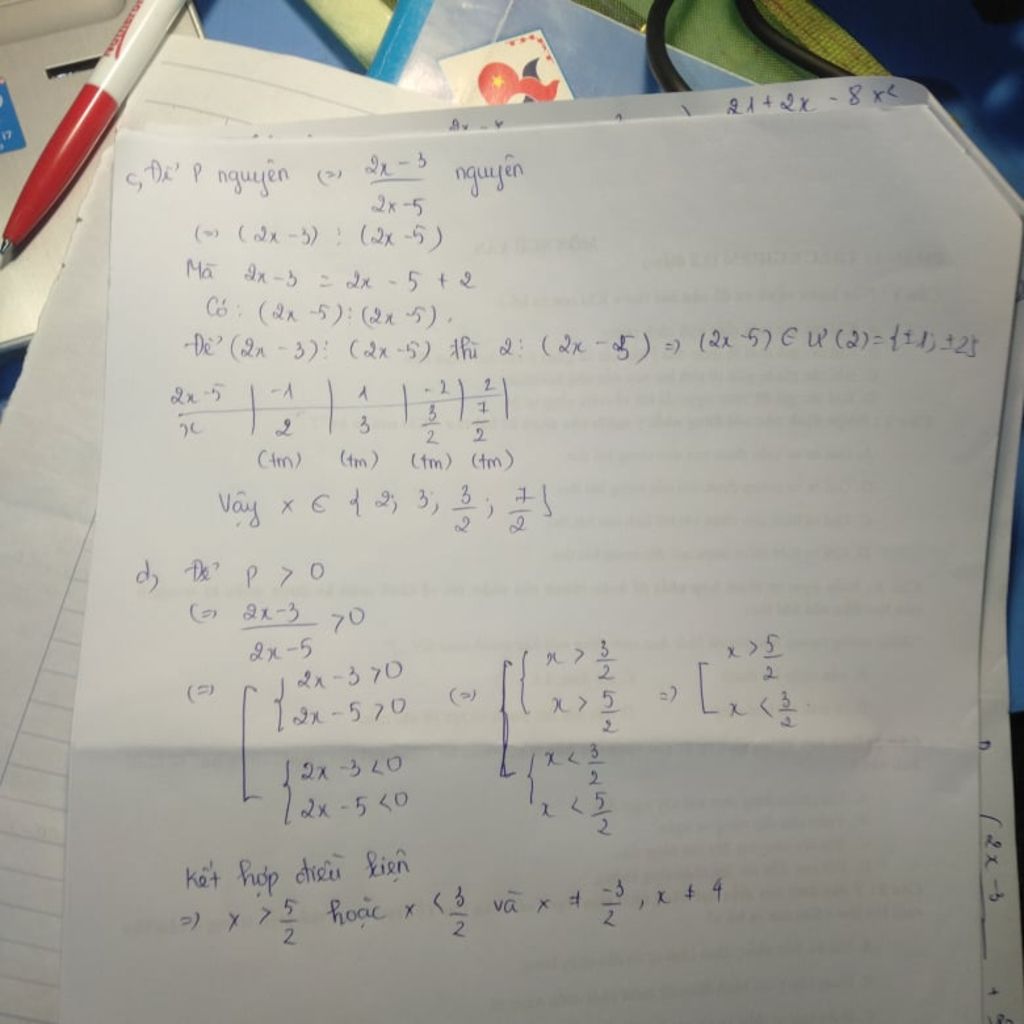 21 + 2x - 8x²
c, Để P nguyên (=) (2x - 3)/(2x - 5) nguyên
(=) (2x - 3) ⋮ (2x - 5)
Mà 2x - 3 = 2x - 5 + 2
Có: (2x - 5) ⋮ (2x - 5).
Để (2x - 3) ⋮ (2x - 5) thì 2 ⋮ (2x - 5) => (2x - 5) ∈ Ư(2) = {±1; ±2}
2x - 5 | -1 | 1 | -2 | 2 |
x | 2 | 3 | 3/2 | 7/2 |
(tm) (tm) (tm) (tm)
Vậy x ∈ {2; 3; 3/2; 7/2}
d, Để P > 0
(=) (2x - 3)/(2x - 5) > 0
(=) [ { 2x - 3 > 0 (=) [ { x > 3/2 => [ x > 5/2
2x - 5 > 0 x > 5/2 x < 3/2
{ 2x - 3 < 0 { x < 3/2
2x - 5 < 0 x < 5/2
Kết hợp điều kiện
=> x > 5/2 hoặc x < 3/2 và x ≠ -3/2, x ≠ 4
(2x - 3